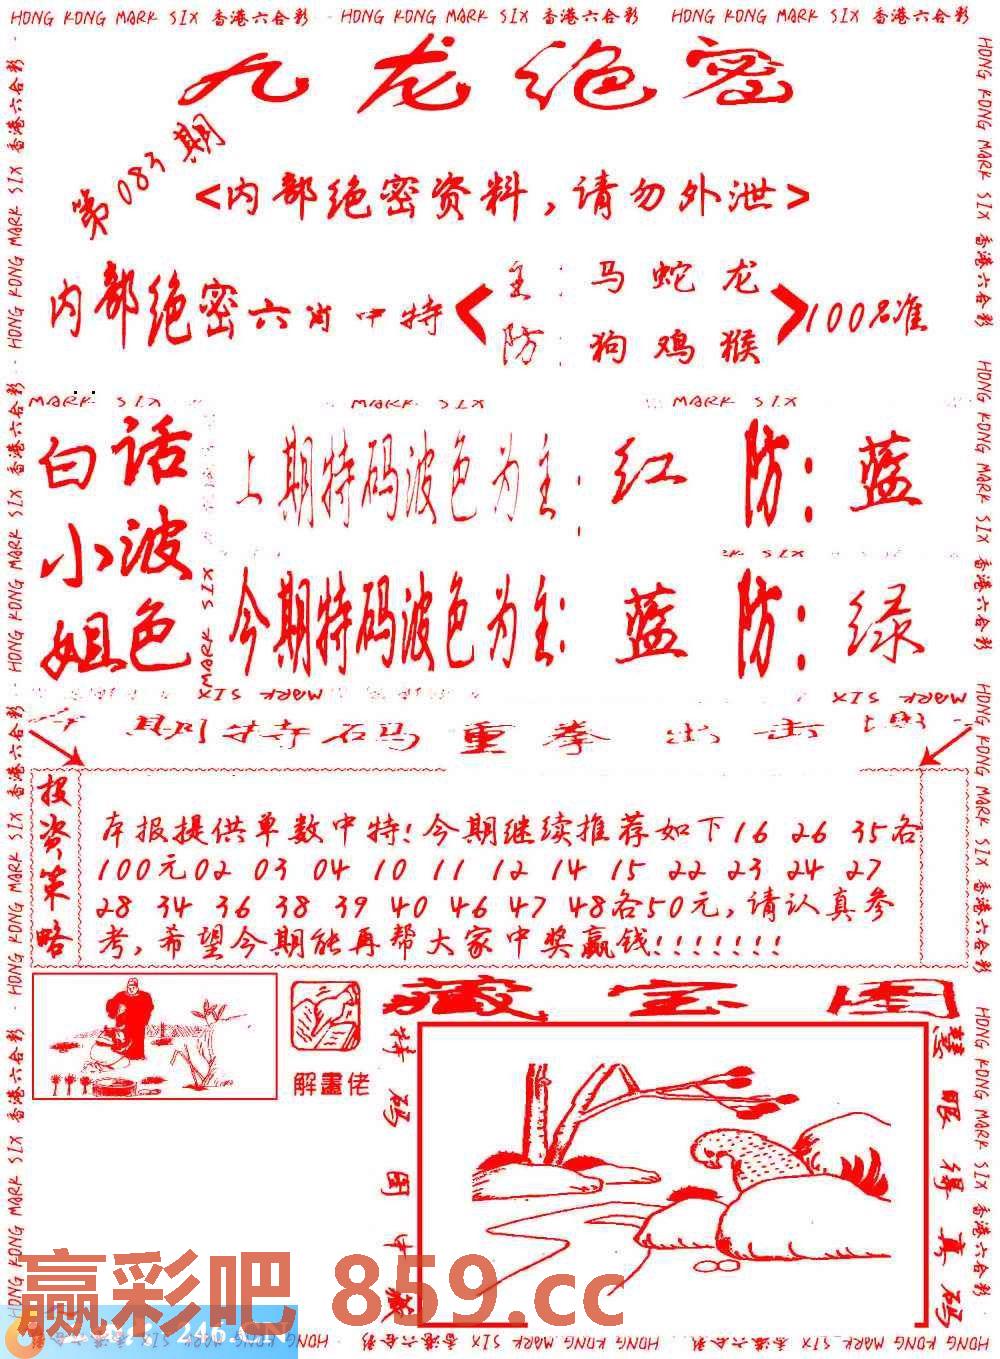 HONG KONG MARK SIX 香港六合彩 HONG KONG MARK SIX 香港六合彩 HONG KONG MARK SIX 香港六合彩
九龙绝密
第083期
<内部绝密资料,请勿外泄>
内部绝密六肖中特
主:马蛇龙
防:狗鸡猴
100%准
MARK SIX MARK SIX MARK SIX
白小姐
话波色
上期特码波色为主:红 防:蓝
今期特码波色为主:蓝 防:绿
MARK SIX
期特码重拳出击
投资策略
本报提供单数中特!今期继续推荐如下16 26 35各
100元02 03 04 10 11 12 14 15 22 23 24 27
28 34 36 38 39 40 46 47 48各50元,请认真参
考,希望今期能再帮大家中奖赢钱!!!!!!!
解畫佬
藏宝图
特码图中藏
慧眼得真码
赢彩吧 859.cc
246.CN
HONG KONG MARK SIX 香港六合彩